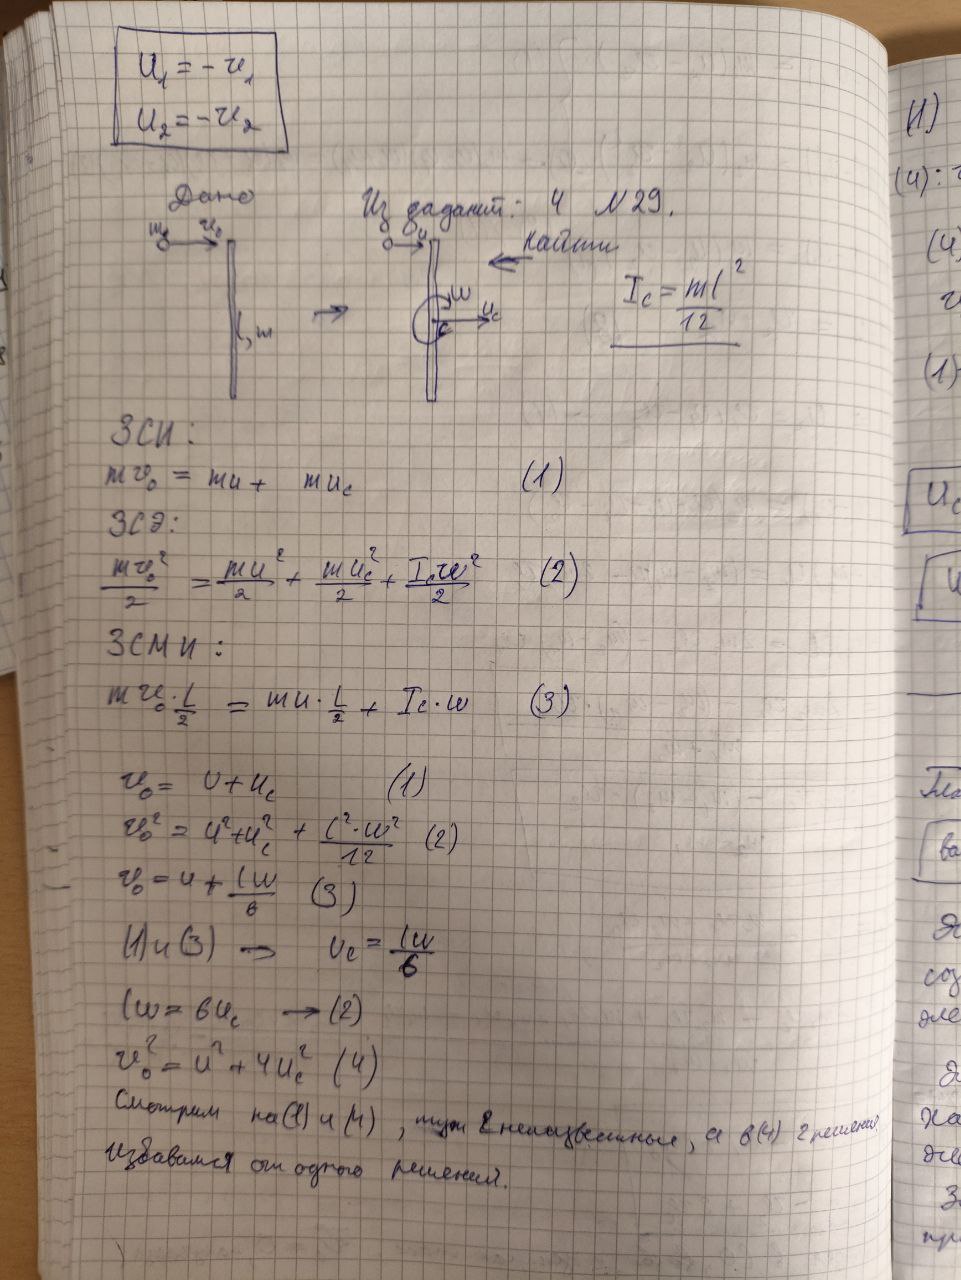 U₁ = - υ₁
U₂ = - υ₂
Дано
Из заданий: 4 N29.
m υ₀
u
Найти
l, m
ω
C
u_c
I_c = ml²/12
ЗСИ:
mυ₀ = mu + mu_c (1)
ЗСЭ:
mυ₀²/2 = mu²/2 + mu_c²/2 + I_cω²/2 (2)
ЗСМИ:
mυ₀·l/2 = mu·l/2 + I_c·ω (3)
υ₀ = u + u_c (1)
υ₀² = u² + u_c² + l²·ω²/12 (2)
υ₀ = u + lω/6 (3)
(1) и (3) → u_c = lω/6
lω = 6u_c → (2)
υ₀² = u² + 4u_c² (4)
Смотрим на (1) и (4), тут 2 неизвестные, а в (4) 2 решения
Избавимся от одного решений.
(1)
(4):
(4)
(1)
U_c
U